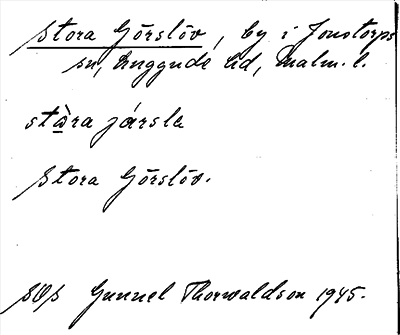 Stora Görslöv, by i Jonstorps
sn, Luggude hd, Malm. l.
stàra jársla
Stora Görslöv.
SOS Gunnel Thorwaldson 1945.